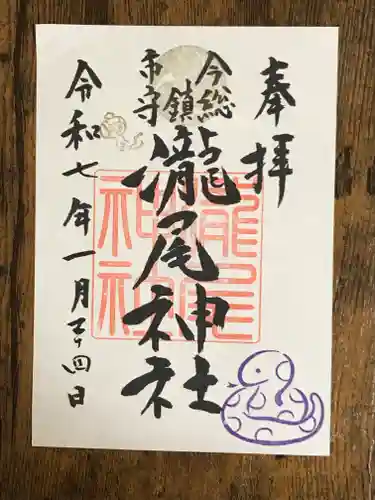 奉拝
今総鎮守
市
瀧尾神社
瀧尾神社
令和七年一月二十四日